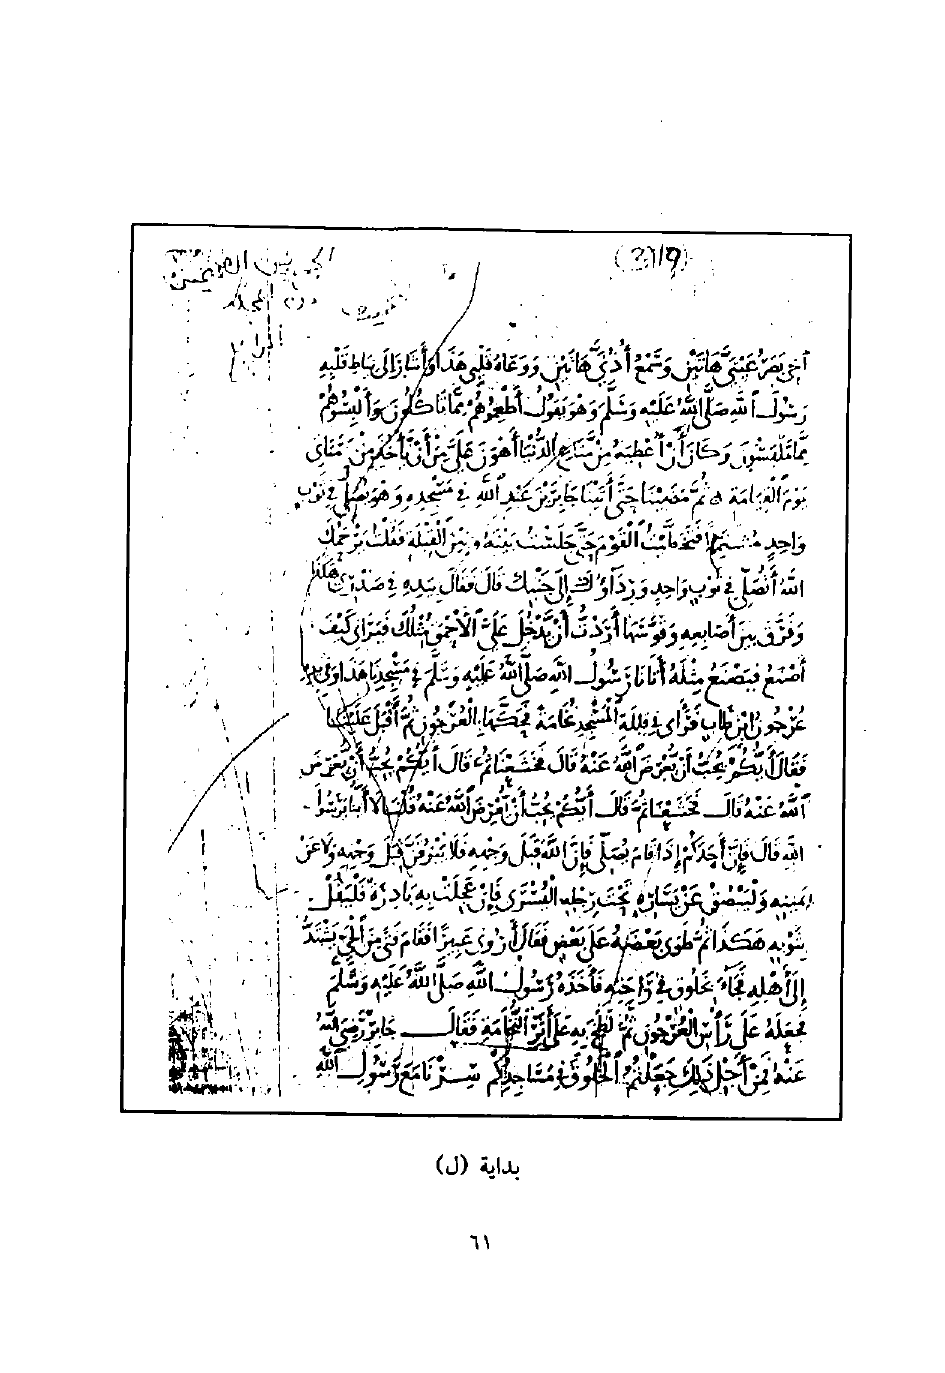 (319)
الجمع بين الصحيحين
من المجلد
الرابع
أخي بَصَرُ عَيْنَيَّ هَاتَيْنِ وَسَمْعُ أُذُنَيَّ هَاتَيْنِ وَوَعَاهُ قَلْبِي هَذَا وَأَشَارَ إِلَى نِيَاطِ قَلْبِهِ
رَسُولَ اللهِ صَلَّى اللهُ عَلَيْهِ وَسَلَّمَ وَهُوَ يَقُولُ أَطْعِمُوهُمْ مِمَّا تَأْكُلُونَ وَأَلْبِسُوهُمْ
مِمَّا تَلْبَسُونَ وَكَانَ أَنْ أُعْطِيَهُ مِنْ مَتَاعِ الدُّنْيَا أَهْوَنَ عَلَيَّ مِنْ أَنْ يَأْخُذَ مِنْ حَسَنَاتِي
يَوْمَ الْقِيَامَةِ ثُمَّ مَضَيْنَا حَتَّى أَتَيْنَا جَابِرَ بْنَ عَبْدِ اللهِ فِي مَسْجِدِهِ وَهُوَ يُصَلِّي فِي ثَوْبٍ
وَاحِدٍ مُشْتَمِلًا فَتَخَطَّيْتُ الْقَوْمَ حَتَّى جَلَسْتُ بَيْنَهُ وَبَيْنَ الْقِبْلَةِ فَقُلْتُ يَرْحَمُكَ
اللهُ أَتُصَلِّي فِي ثَوْبٍ وَاحِدٍ وَرِدَاؤُكَ إِلَى جَنْبِكَ قَالَ فَقَالَ بِيَدِهِ فِي صَدْرِي هَكَذَا
وَفَرَّقَ بَيْنَ أَصَابِعِهِ وَقَوَّسَهَا أَرَدْتُ أَنْ يَدْخُلَ عَلَيَّ الْأَحْمَقُ مِثْلُكَ فَيَرَانِي كَيْفَ
أَصْنَعُ فَيَصْنَعُ مِثْلَهُ أَتَانَا رَسُولُ اللهِ صَلَّى اللهُ عَلَيْهِ وَسَلَّمَ فِي مَسْجِدِنَا هَذَا وَفِي يَدِهِ
عُرْجُونُ ابْنِ طَابٍ فَرَأَى فِي قِبْلَةِ الْمَسْجِدِ نُخَامَةً فَحَكَّهَا بِالْعُرْجُونِ ثُمَّ أَقْبَلَ عَلَيْنَا
فَقَالَ أَيُّكُمْ يُحِبُّ أَنْ يُعْرِضَ اللهُ عَنْهُ قَالَ فَخَشَعْنَا ثُمَّ قَالَ أَيُّكُمْ يُحِبُّ أَنْ يُعْرِضَ
اللهُ عَنْهُ قَالَ فَخَشَعْنَا ثُمَّ قَالَ أَيُّكُمْ يُحِبُّ أَنْ يُعْرِضَ اللهُ عَنْهُ قُلْنَا لَا أَيُّنَا يَا رَسُولَ
اللهِ قَالَ فَإِنَّ أَحَدَكُمْ إِذَا قَامَ يُصَلِّي فَإِنَّ اللهَ قِبَلَ وَجْهِهِ فَلَا يَبْزُقَنَّ قِبَلَ وَجْهِهِ وَلَا عَنْ
يَمِينِهِ وَلْيَبْصُقْ عَنْ يَسَارِهِ تَحْتَ رِجْلِهِ الْيُسْرَى فَإِنْ عَجِلَتْ بِهِ بَادِرَةٌ فَلْيَقُلْ
بِثَوْبِهِ هَكَذَا ثُمَّ طَوَى بَعْضَهُ عَلَى بَعْضٍ فَقَالَ أَرُونِي عَبِيرًا فَقَامَ فَتًى مِنَ الْحَيِّ يَشْتَدُّ
إِلَى أَهْلِهِ فَجَاءَ بِخَلُوقٍ فِي رَاحَتِهِ فَأَخَذَهُ رَسُولُ اللهِ صَلَّى اللهُ عَلَيْهِ وَسَلَّمَ
فَجَعَلَهُ عَلَى رَأْسِ الْعُرْجُونِ ثُمَّ لَطَخَ بِهِ عَلَى أَثَرِ النُّخَامَةِ فَقَالَ جَابِرٌ رَضِيَ اللهُ
عَنْهُ فَمِنْ أَجْلِ ذَلِكَ جَعَلْتُمُ الْخَلُوقَ فِي مَسَاجِدِكُمْ سِرْنَا مَعَ رَسُولِ اللهِ
بداية (ل)
٦١